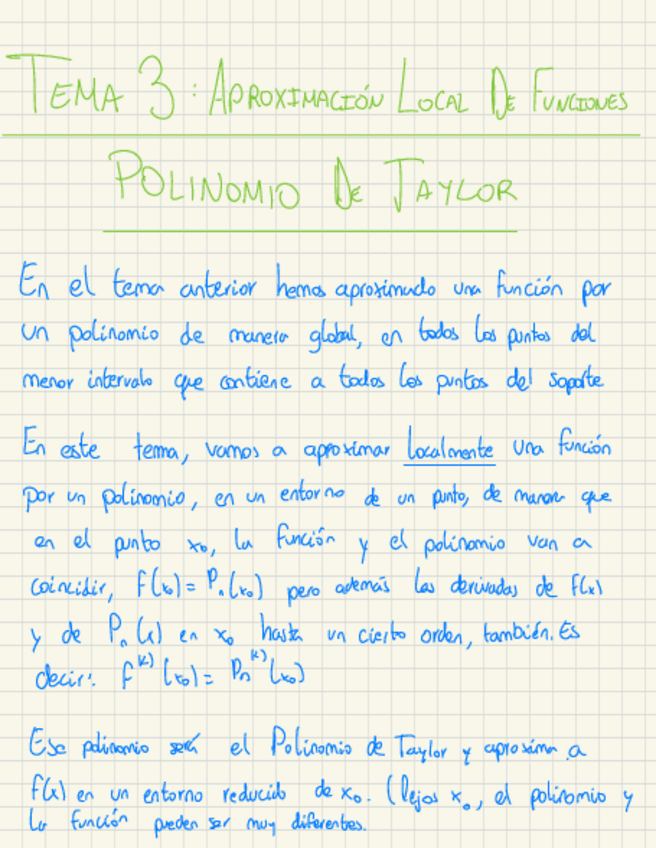 TEMA 3: APROXIMACIÓN LOCAL DE FUNCIONES
POLINOMIO DE TAYLOR
En el tema anterior hemos aproximado una función por
un polinomio de manera global, en todos los puntos del
menor intervalo que contiene a todos los puntos del soporte
En este tema, vamos a aproximar localmente una función
por un polinomio, en un entorno de un punto, de manera que
en el punto x₀, la función y el polinomio van a
coincidir, f(x₀) = Pₙ(x₀) pero además las derivadas de f(x)
y de Pₙ(x) en x₀ hasta un cierto orden, también. Es
decir: f⁽ᵏ⁾(x₀) = Pₙ⁽ᵏ⁾(x₀)
Ese polinomio será el Polinomio de Taylor y aproxima a
f(x) en un entorno reducido de x₀. (lejos x₀, el polinomio y
la función pueden ser muy diferentes.